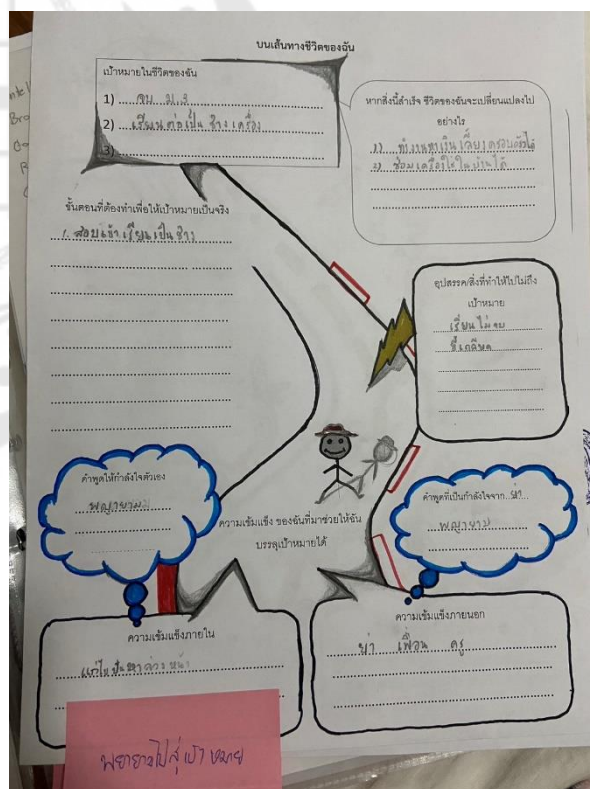 บนเส้นทางชีวิตของฉัน
เป้าหมายในชีวิตของฉัน
1) จบ ม.3
2) เรียนต่อเป็น ช่างเครื่อง
3)
หากสิ่งนี้สำเร็จ ชีวิตของฉันจะเปลี่ยนแปลงไป
อย่างไร
1) ทำงานหาเงินเลี้ยงครอบครัวได้
2) ซ่อมเครื่องใช้ในบ้านได้
ขั้นตอนที่ต้องทำเพื่อให้เป้าหมายเป็นจริง
1. สอบเข้าเรียนเป็นช่าง
อุปสรรค/สิ่งที่ทำให้ไปไม่ถึง
เป้าหมาย
เรียนไม่จบ
ขี้เกียจ
คำพูดให้กำลังใจตัวเอง
พญายาม
คำพูดที่เป็นกำลังใจจาก ย่า
พญายาม
ความเข้มแข็ง ของฉันที่มาช่วยให้ฉัน
บรรลุเป้าหมายได้
ความเข้มแข็งภายใน
แก้ไขปัญหาล่วงหน้า
ความเข้มแข็งภายนอก
ย่า เพื่อน ครู
พยายามไปสู่เป้าหมาย